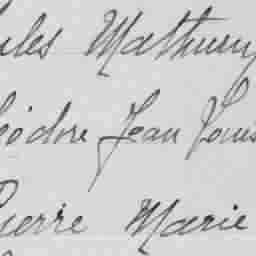 ules Mathurin
éodore Jean Louis
Pierre Marie